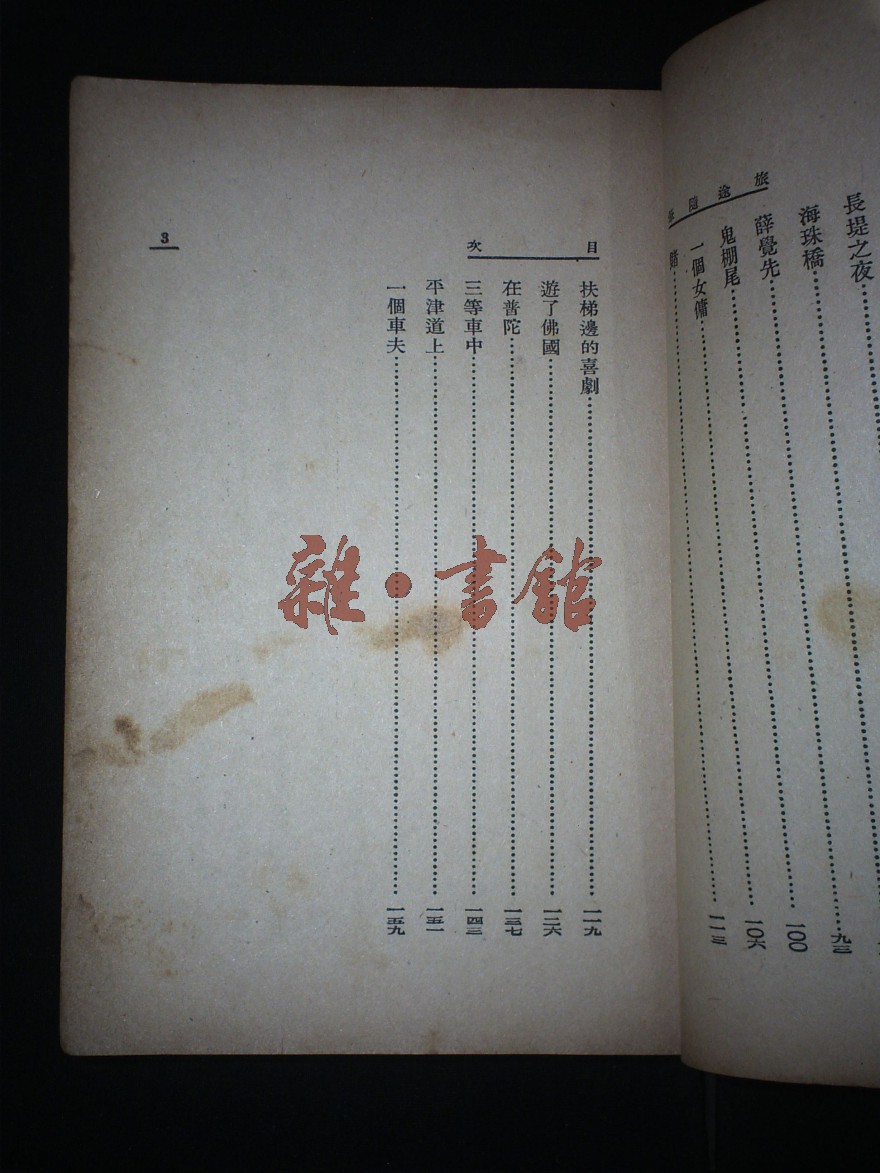 旅途隨
長堤之夜
海珠橋……九三
薛覺先……一〇〇
鬼棚尾……一〇六
一個女傭……一一三
賭……
目次
扶梯邊的喜劇……一一九
遊了佛國……一二六
在普陀……一三七
三等車中……一四三
平津道上……一五一
一個車夫……一五九
3
雜·書館